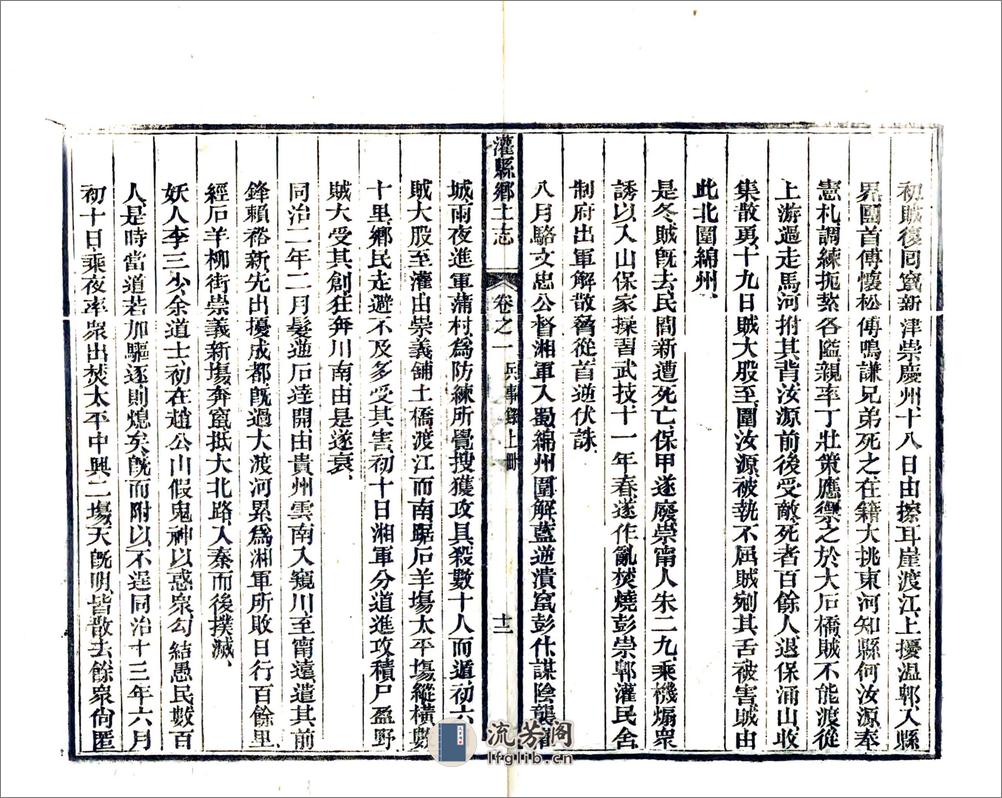 初賊復回竄新津崇慶州十八日由擦耳崖渡江上擾溫郫入縣
界團首傅懷松傅鳴謙兄弟死之在籍大挑東河知縣何汝源奉
憲札調練扼紮各隘親率丁壯策應禦之於大石橋賊不能渡從
上游過走馬河拊其背汝源前後受敵死者百餘人退保涌山收
集散勇十九日賊大股至圍汝源被執不屈賊剜其舌被害賊由
此北圍綿州
是冬賊旣去民間新遭死亡保甲遂廢崇甯人朱二九乘機煽衆
誘以入山保家操習武技十一年春遂作亂焚燒彭崇郫灌民舍
制府出軍解散脅從首逆伏誅
八月駱文忠公督湘軍入蜀綿州圍解藍逆潰竄彭什謀陰襲省
灌縣鄉土志
卷之一 兵事錄上冊
十二
城兩夜進軍蒲村爲防練所覺搜獲攻具殺數十人而遁初六
賊大股至灌由崇義鋪土橋渡江而南踞石羊塲太平塲縱橫數
十里鄉民走避不及多受其害初十日湘軍分道進攻積尸盈野
賊大受其創狂奔川南由是遂衰
同治二年二月髮逆石達開由貴州雲南入窺川至甯遠遣其前
鋒賴裕新先出擾成都旣過大渡河累爲湘軍所敗日行百餘里
經石羊柳街崇義新塲奔竄抵大北路入秦而後撲滅
妖人李三少余道士初在趙公山假鬼神以惑衆勾結愚民數百
人是時當道若加驅逐則熄矣旣而附以不逞同治十三年六月
初十日乘夜率衆出焚太平中興二塲天旣明皆散去餘衆尙匿
流芳閣
lfglib.cn